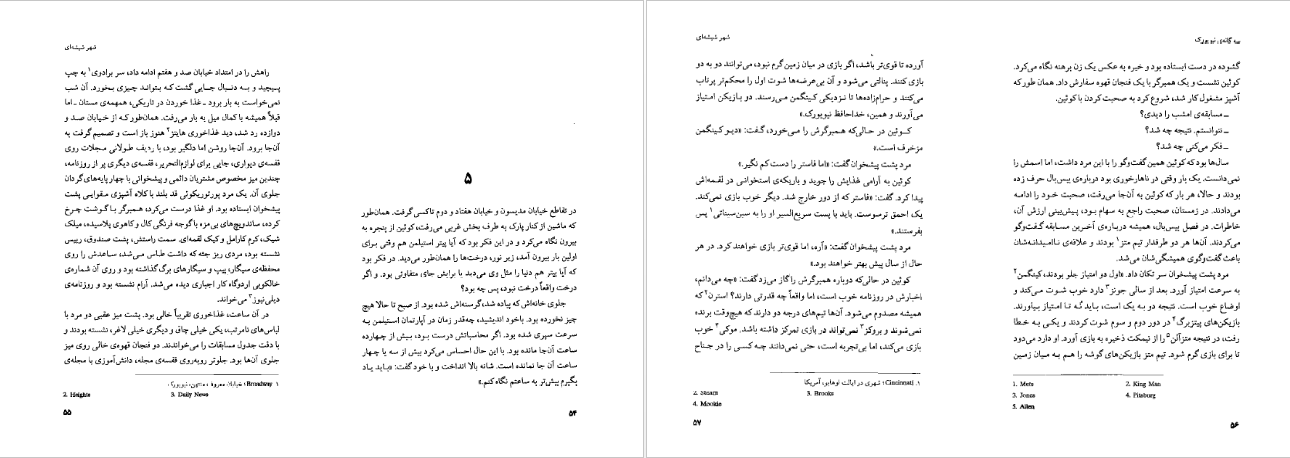 ۵
در تقاطع خیابان مدیسون و خیابان هفتاد و دوم تاکسی گرفت. همان‌طور
که ماشین از کنار پارک به طرف بخش غربی می‌رفت، کوئین از پنجره به
بیرون نگاه می‌کرد و در این فکر بود که آیا پیتر استیلمن هم وقتی برای
اولین بار بیرون آمد، زیر نوره درخت‌ها را همان‌طور می‌دید. در فکر بود
که آیا پیتر هم دنیا را مثل وی می‌دید یا برایش جای متفاوتی بود. و اگر
درخت واقعاً درخت نبود، پس چه بود؟
جلوی خانه‌اش که پیاده شد، گرسنه‌اش شده بود. از صبح تا حالا هیچ
چیز نخورده بود. باخود اندیشید، چه‌قدر زمان در آپارتمان استیلمن به
سرعت سپری شده بود. اگر محاسباتش درست بود، بیش از چهارده
ساعت آن‌جا مانده بود. با این حال احساس می‌کرد بیش از سه یا چهار
ساعت آن جا نمانده است. شانه بالا انداخت و با خود گفت: «باید یاد
بگیرم بیش‌تر به ساعتم نگاه‌کنم.»
۵۴
شهر شیشه‌ای
راهش را در امتداد خیابان صد و هفتم ادامه داد، سر برادوی۱ به چپ
پیچید و به دنبال جایی گشت که بتواند چیزی بخورد. آن شب
نمی‌خواست به بار برود ــ غذا خوردن در تاریکی، همهمه‌ی مستان ــ اما
قبلاً همیشه با کمال میل به بار می‌رفت. همان‌طورکه از خیابان صد و
دوازده رد شد، دید غذاخوری هایتز۲ هنوز باز است و تصمیم گرفت به
آن‌جا برود. آن‌جا روشن اما دلگیر بود، با ردیف طولانی مجلات روی
قفسه‌ی دیواری، جایی برای لوازم‌التحریر، قفسه‌ی دیگری پر از روزنامه،
چندین میز مخصوص مشتریان دائمی و پیشخوانی با چهارپایه‌های گردان
جلوی آن. یک مرد پورتوریکوئی قد بلند با کلاه آشپزی مقوایی پشت
پیشخوان ایستاده بود. او غذا درست می‌کرد، همبرگر با گوشت چرخ
کرده، ساندویچ‌های بی‌مزه با گوجه فرنگی کال و کاهوی پلاسیده، میلک
شیک، کرم کارامل و کیک لقمه‌ای. سمت راستش، پشت صندوق، رییس
نشسته بود، مردی ریز جثه که داشت طاس می‌شد، ساعدش را روی
محفظه‌ی سیگار، پیپ و سیگارهای برگ گذاشته بود و روی آن شماره‌ی
خالکوبی اردوگاه کار اجباری دیده می‌شد. آرام نشسته بود و روزنامه‌ی
دیلی‌نیوز۳ می‌خواند.
در آن ساعت، غذاخوری تقریباً خالی بود. پشت میز عقبی دو مرد با
لباس‌های نامرتب، یکی خیلی چاق و دیگری خیلی لاغر، نشسته بودند و
با دقت جدول مسابقات را می‌خواندند. دو فنجان قهوه‌ی خالی روی میز
جلوی آن‌ها بود. جلوتر روبه‌روی قفسه‌ی مجله، دانش‌آموزی با مجله‌ی
۱. Broadway؛ خیابان معروف منهتن، نیویورک
2. Heights 3. Daily News
۵۵
سه گانه‌ی نیویورک
گشوده در دست ایستاده بود و خیره به عکس یک زن برهنه نگاه می‌کرد.
کوئین نشست و یک همبرگر با یک فنجان قهوه سفارش داد. همان طور که
آشپز مشغول کار شد، شروع کرد به صحبت کردن با کوئین.
ــ مسابقه‌ی امشب را دیدی؟
ــ نتوانستم. نتیجه چه شد؟
ــ فکر می‌کنی چه شد؟
سال‌ها بود که کوئین همین گفت‌وگو را با این مرد داشت، اما اسمش را
نمی‌دانست. یک بار وقتی در ناهارخوری بود درباره‌ی بیس‌بال حرف زده
بودند و حالا، هر بار که کوئین به آن‌جا می‌رفت، صحبت خود را ادامه
می‌دادند. در زمستان، صحبت راجع به سهام بود، پیش‌بینی ارزش آن،
خاطرات. در فصل بیس‌بال، همیشه درباره‌ی آخرین مسابقه گفت‌وگو
می‌کردند. آن‌ها هر دو طرفدار تیم متز۱ بودند و علاقه‌ی ناامیدانه‌شان
باعث گفت‌وگوی همیشگی‌شان می‌شد.
مرد پشت پیشخوان سر تکان داد. «اول دو امتیاز جلو بودند، کینگمن۲
به سرعت امتیاز آورد. بعد از سالی جونز۳ دارد خوب شوت می‌کند و
اوضاع خوب است. نتیجه دو به یک است، باید گُه تا امتیاز بیاورند.
بازیکن‌های پیتزبرگ۴ در دور دوم و سوم شوت کردند و یکی به خطا
رفت، در نتیجه متزآلن۵ را از نیمکت ذخیره به بازی آورد. او دارد می‌دود
تا برای بازی گرم شود. تیم متز بازیکن‌های گوشه را هم به میان زمین
1. Mets 2. King Man
3. Jones 4. Pitsburg
5. Allen
۵۶
شهر شیشه‌ای
آورده تا قوی‌تر باشد، اگر بازی در میان زمین گرم نبود، می‌توانند دو به دو
بازی کنند. پنالتی می‌شود و آن بی‌عرضه‌ها شوت اول را محکم‌تر پرتاب
می‌کنند و حرام‌زاده‌ها تا نزدیکی کینگمن می‌رسند. دو بازیکن امتیاز
می‌آورند و همین، خداحافظ نیویورک.»
کوئین در حالی‌که همبرگرش را می‌خورد، گفت: «دیو کینگمن
مزخرف است.»
مرد پشت پیشخوان گفت: «اما فاستر را دست کم نگیر.»
کوئین به آرامی غذایش را جوید و باریکه‌ی استخوانی در لقمه‌اش
پیدا کرد. گفت: «فاستر که از دور خارج شد. دیگر خوب بازی نمی‌کند.
یک احمق ترسوست. باید با پست سریع‌السیر او را به سین‌سیناتی۱ پس
بفرستند.»
مرد پشت پیشخوان گفت: «آره، اما قوی‌تر بازی خواهند کرد. در هر
حال از سال پیش بهتر خواهند بود.»
کوئین در حالی‌که دوباره همبرگرش را گاز می‌زدگفت: «چه می‌دانم،
اخبارش در روزنامه خوب است، اما واقعاً چه قدرتی دارند؟ استرن۲ که
همیشه مصدوم می‌شود. آن‌ها تیم‌های درجه دو دارند که هیچ‌وقت برنده
نمی‌شوند و بروکز۳ نمی‌تواند در بازی تمرکز داشته باشد. موکی۴ خوب
بازی می‌کند، اما بی‌تجربه است، حتی نمی‌دانند چه کسی را در جناح
۱. Cincinnati؛ شهری در ایالت اوهایو، آمریکا
3. Brooks
4. Mookie
۵۷